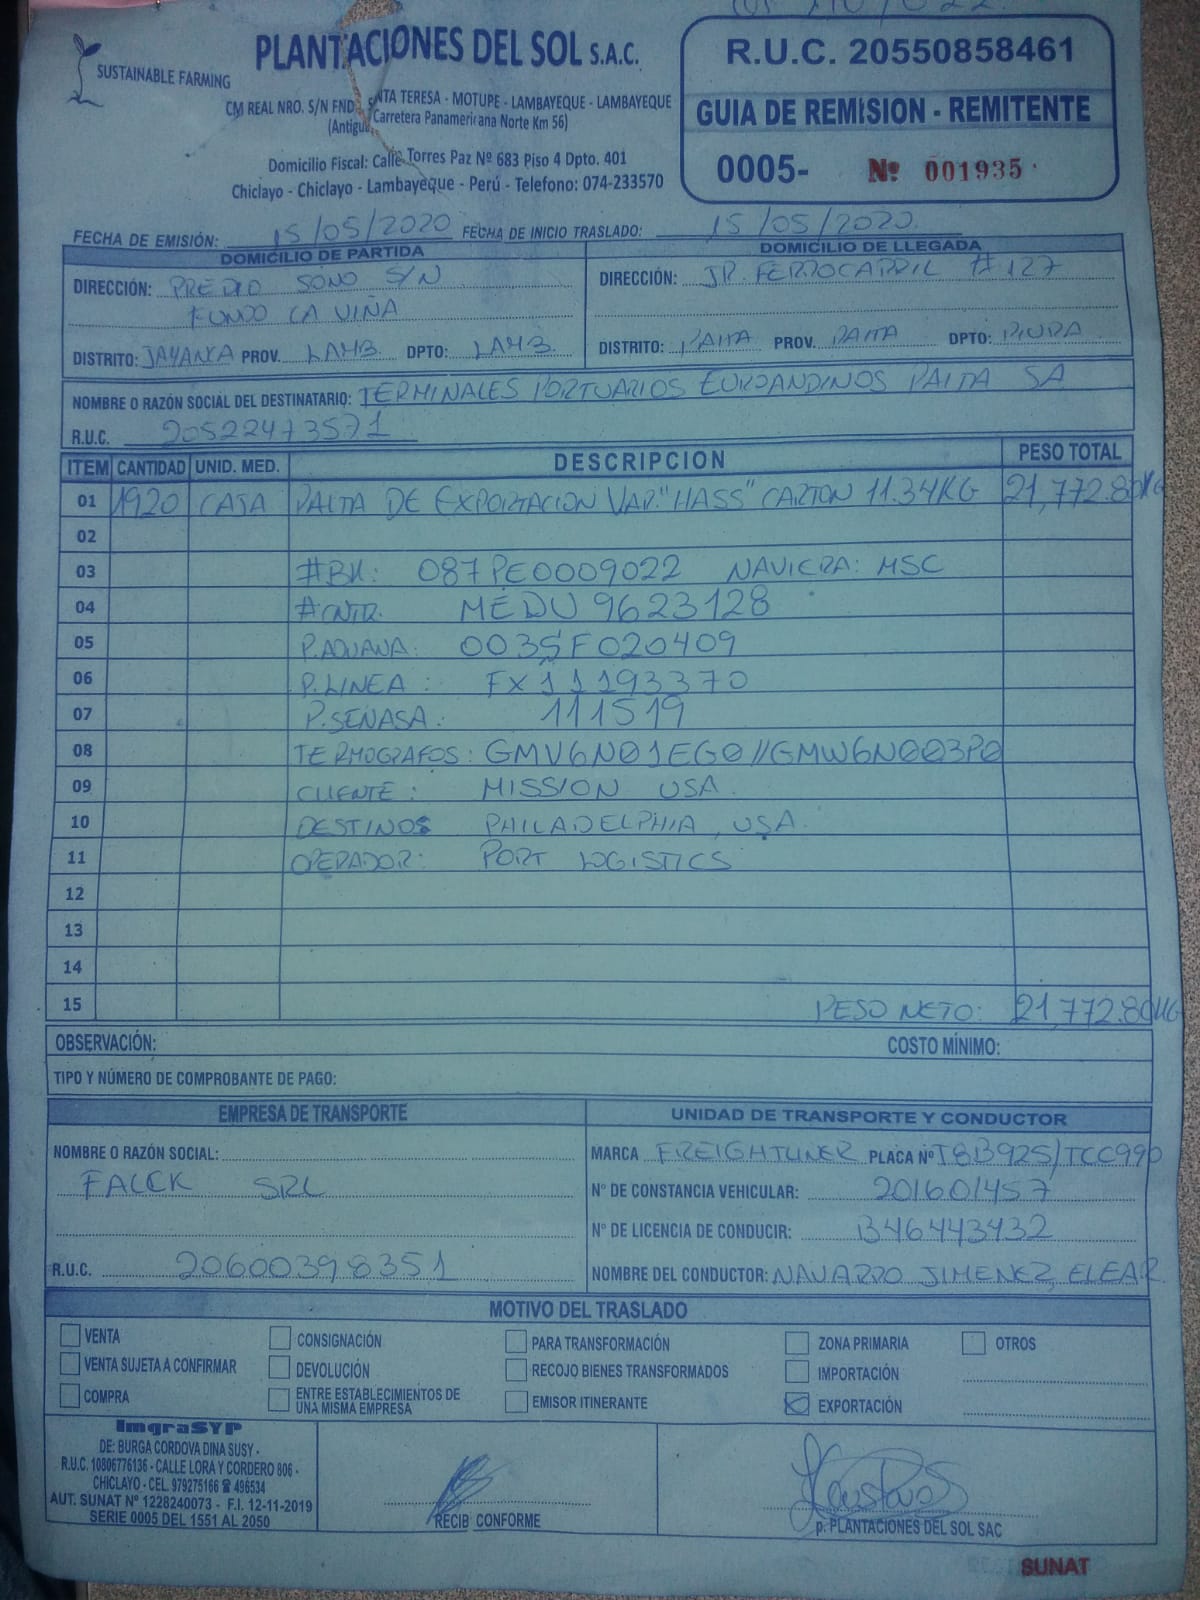 PLANTACIONES DEL SOL S.A.C.
SUSTAINABLE FARMING
CM REAL NRO. S/N FND. NTA TERESA - MOTUPE - LAMBAYEQUE - LAMBAYEQUE
(Antigu Carretera Panamericana Norte Km 56)
Domicilio Fiscal: Calle Torres Paz Nº 683 Piso 4 Dpto. 401
Chiclayo - Chiclayo - Lambayeque - Perú - Telefono: 074-233570
R.U.C. 20550858461
GUIA DE REMISION - REMITENTE
0005- Nº 001935
FECHA DE EMISIÓN: 15/05/2020 FECHA DE INICIO TRASLADO: 15/05/2020
DOMICILIO DE PARTIDA
DIRECCIÓN: PREDIO SONO S/N
FUNDO LA VIÑA
DISTRITO: JAYANCA PROV. LAMB. DPTO: LAMB.
DOMICILIO DE LLEGADA
DIRECCIÓN: JR. FERROCARRIL # 127
DISTRITO: PAITA PROV. PAITA DPTO: PIURA
NOMBRE O RAZÓN SOCIAL DEL DESTINATARIO: TERMINALES PORTUARIOS EUROANDINOS PAITA SA
R.U.C. 20522473571
ITEM CANTIDAD UNID. MED. DESCRIPCION PESO TOTAL
01 1920 CAJA PALTA DE EXPORTACION VAR. "HASS" CARTON 11.34KG 21,772.80KG
02
03 #BK: 087PE0009022 NAVIERA: MSC
04 #CNTR. MEDU 9623128
05 P.ADUANA: 003SF020409
06 P.LINEA: FX11193370
07 P.SENASA: 111519
08 TERMOGRAFOS: GMV6N01EG0//GMW6N003P0
09 CLIENTE: MISSION USA.
10 DESTINOS PHILADELPHIA, USA.
11 OPERADOR: PORT LOGISTICS
12
13
14
15 PESO NETO: 21,772.80KG
OBSERVACIÓN: COSTO MÍNIMO:
TIPO Y NÚMERO DE COMPROBANTE DE PAGO:
EMPRESA DE TRANSPORTE
NOMBRE O RAZÓN SOCIAL:
FALCK SRL
R.U.C. 20600398351
UNIDAD DE TRANSPORTE Y CONDUCTOR
MARCA FREIGHTLINER PLACA Nº T8B925/TCC990
Nº DE CONSTANCIA VEHICULAR: 201601457
Nº DE LICENCIA DE CONDUCIR: B46443432
NOMBRE DEL CONDUCTOR: NAVARRO JIMENEZ, ELEAR
MOTIVO DEL TRASLADO
VENTA CONSIGNACIÓN PARA TRANSFORMACIÓN ZONA PRIMARIA OTROS
VENTA SUJETA A CONFIRMAR DEVOLUCIÓN RECOJO BIENES TRANSFORMADOS IMPORTACIÓN
COMPRA ENTRE ESTABLECIMIENTOS DE UNA MISMA EMPRESA EMISOR ITINERANTE EXPORTACIÓN
ImgraSYP
DE: BURGA CORDOVA DINA SUSY -
R.U.C. 10806776136 - CALLE LORA Y CORDERO 806 -
CHICLAYO - CEL. 979275166 ☎ 496534
AUT. SUNAT Nº 1228240073 - F.I. 12-11-2019
SERIE 0005 DEL 1551 AL 2050
RECIB CONFORME
p. PLANTACIONES DEL SOL SAC
SUNAT